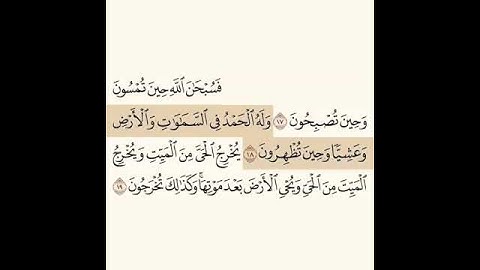 فَسُبْحَٰنَ ٱللَّهِ حِينَ تُمْسُونَ
وَحِينَ تُصْبِحُونَ ١٧ وَلَهُ ٱلْحَمْدُ فِى ٱلسَّمَٰوَٰتِ وَٱلْأَرْضِ
وَعَشِيًّا وَحِينَ تُظْهِرُونَ ١٨ يُخْرِجُ ٱلْحَىَّ مِنَ ٱلْمَيِّتِ وَيُخْرِجُ
ٱلْمَيِّتَ مِنَ ٱلْحَىِّ وَيُحْىِ ٱلْأَرْضَ بَعْدَ مَوْتِهَا ۚ وَكَذَٰلِكَ تُخْرَجُونَ ١٩